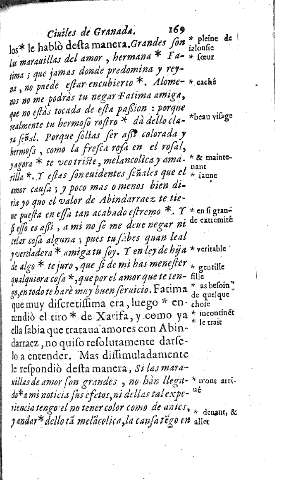 Ciuiles de Granada. 169
los* le habló desta manera. Grandes son
las marauillas del amor, hermana * Fa-
tima; que jamas donde predomina y rey-
na, no puede estar encubierto *. Alome-
nos no me podràs tu negar Fatima amiga,
que no estàs tocada de esta passion: porque
realmente tu hermoso rostro * dà dello cla-
ra señal. Porque solias ser assi colorada y
hermosa, como la fresca rosa en el rosal,
y aora * te veo triste, melancolica y ama-
rilla *. Y estas son euidentes señales que el
amor causa; y poco mas o menos bien di-
ria yo que el valor de Abindarraez te tie-
ne puesta en essa tan acabado estremo *. Y
si esso es assi, a mi no se me deue negar ni
celar cosa alguna; pues tu sabes quan leal
y verdadera * amiga tuy soy. Y en ley de hija
de algo * te juro, que si de mi has menester
qualquiera cosa *, que por el amor que te ten-
go, en todo te harè muy buen seruicio. Fatima
que muy discretissima era, luego * en-
tendiò el tiro * de Xarifa, y como ya
ella sabia que trataua amores con Abin-
darraez, no quiso resolutamente darse-
lo a entender. Mas dissimuladamente
le respondiò desta manera, Si las mara-
uillas de amor son grandes, no hàn llega-
do * a mi noticia sus efetos, ni dellas tal expe-
riencia tengo el no tener color como de antes,
y andar * dello tã melãcolica, la causa tẽgo en
* pleine de
ialousie
* sœur
* caché
* beau visage
* & mainte-
nant
* iaune
* en si gran-
de extremité
* veritable
* gentille
fille
* as besoin
de quelque
chose
* incontinẽt
* le trait
* m'ont arri-
ué
* deuant, &
aller